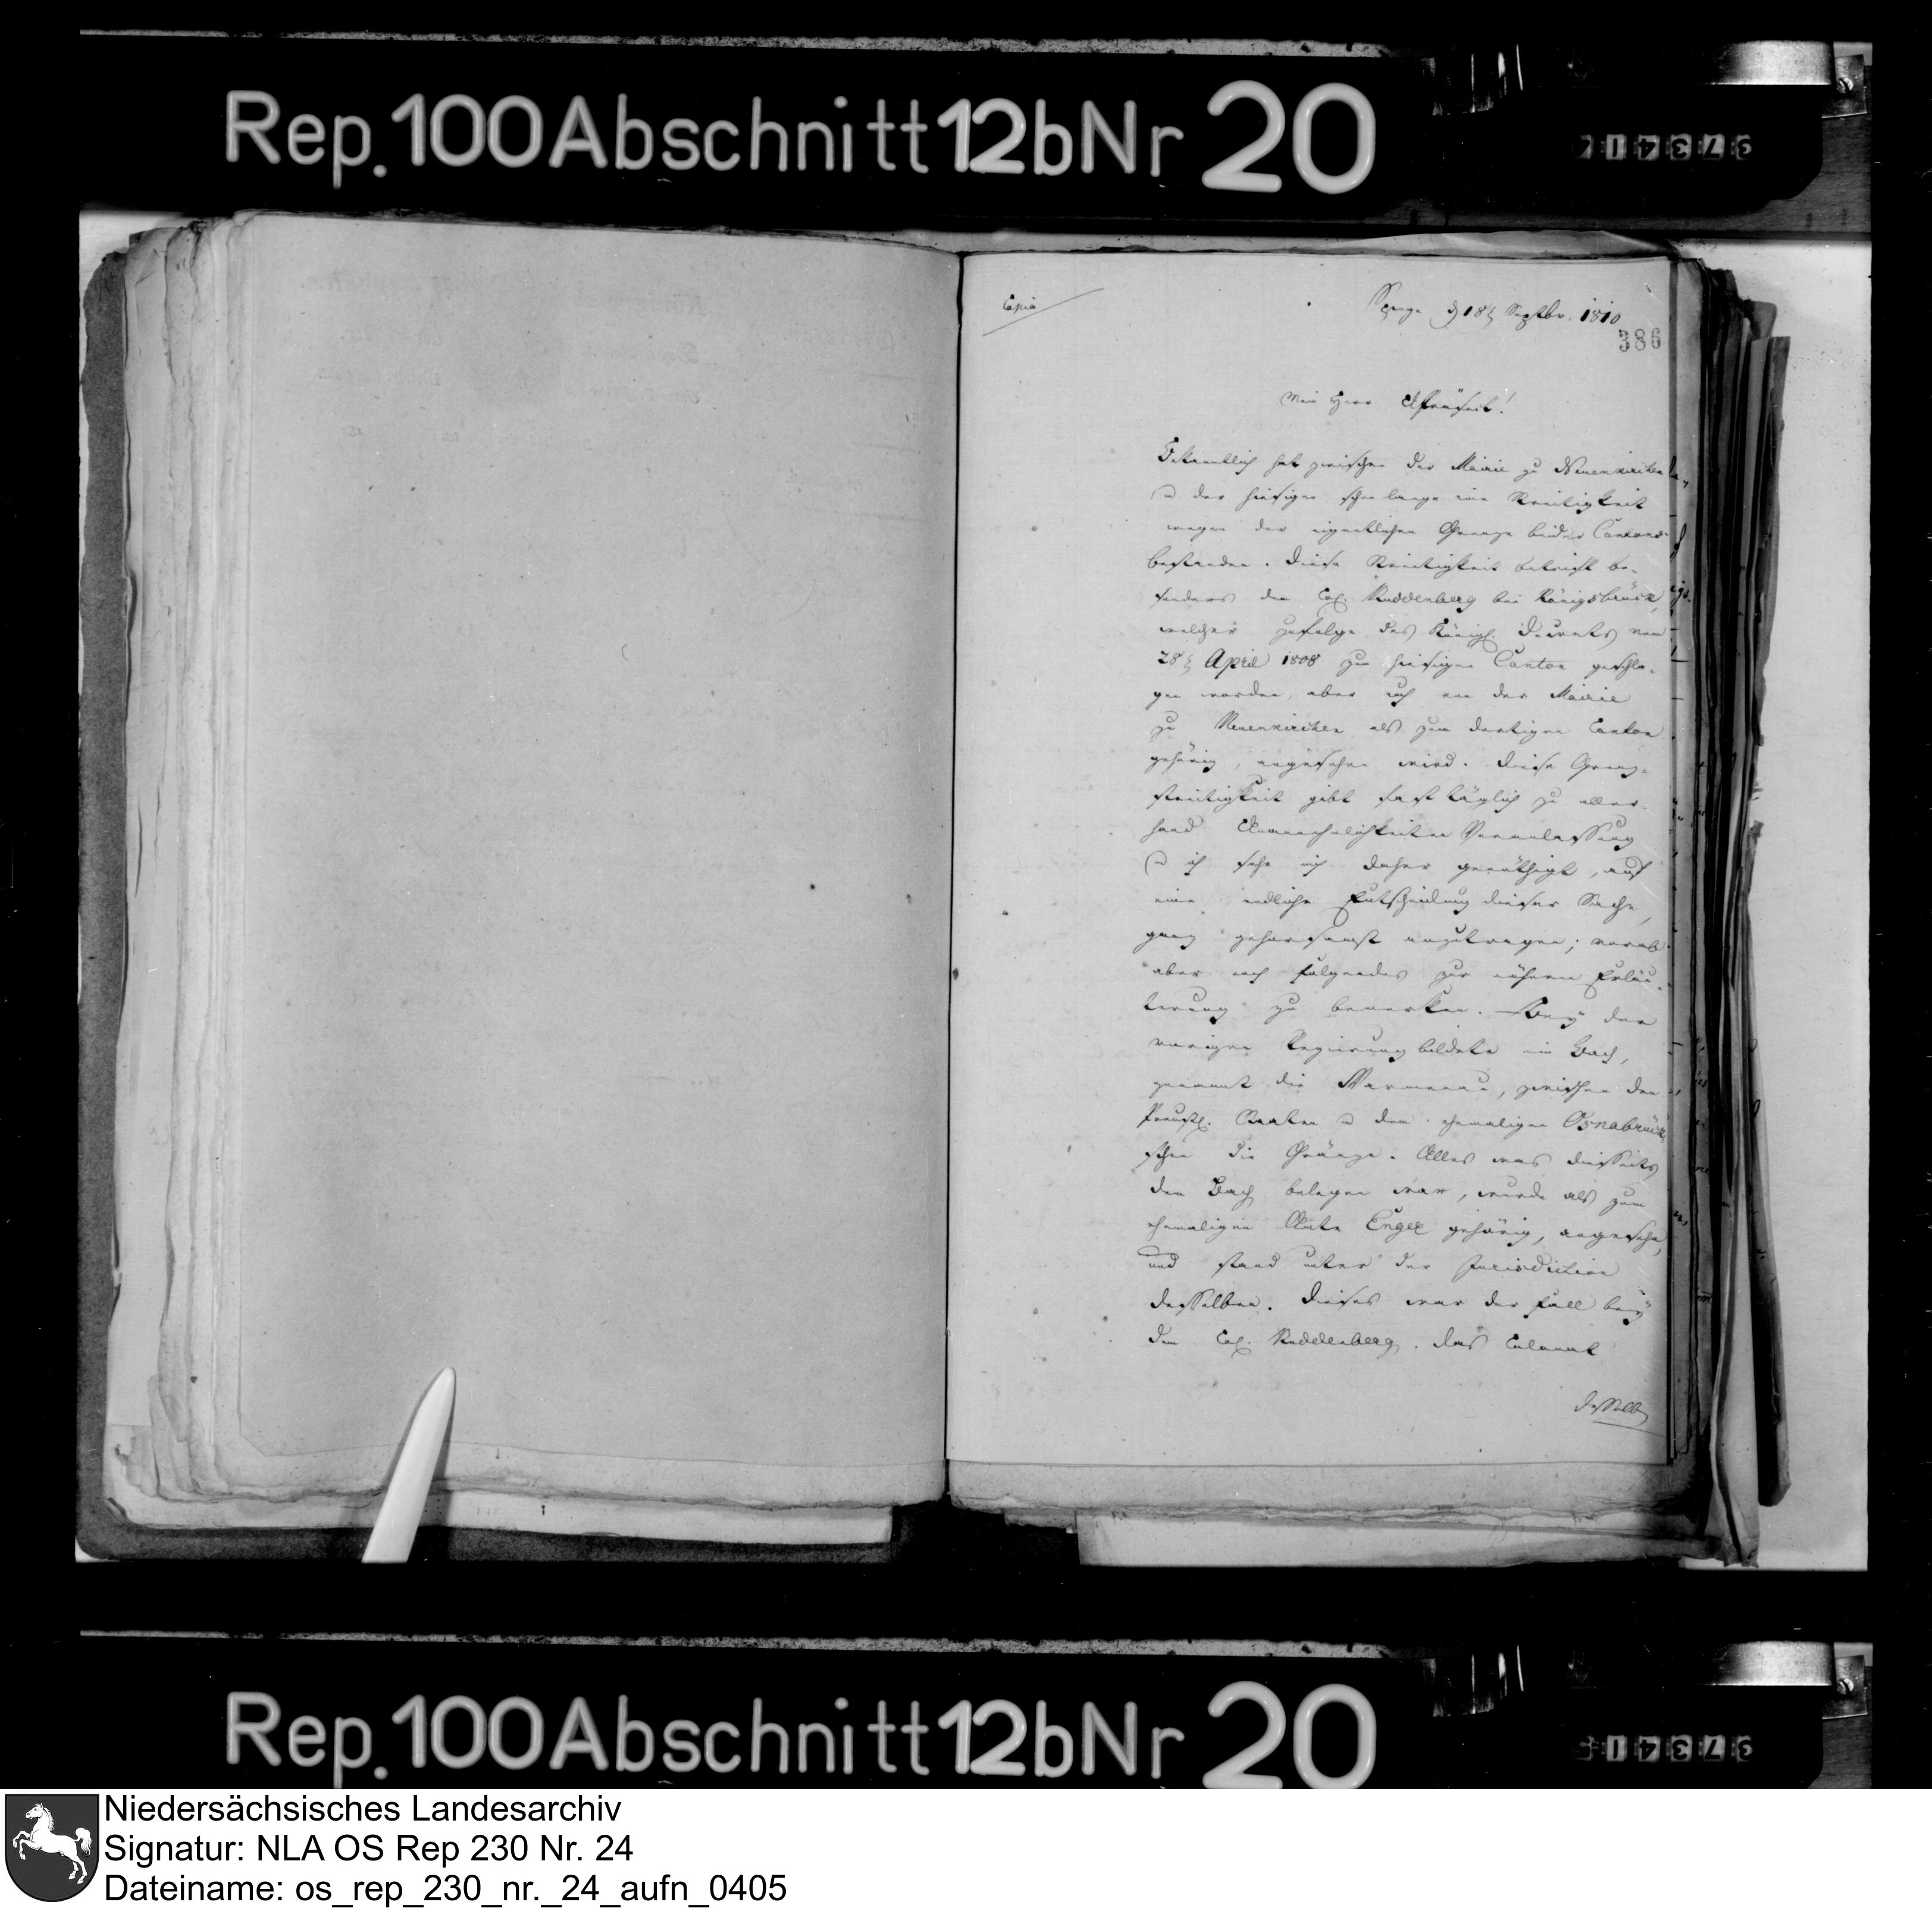 Rep. 100 Abschnitt 12b Nr 20
Copia
Spenge d 18t Septbr. 1810
386
Mein Herr
Bekanntlich hat zwischen der Mairie zu Neuenkirchen
u der hiesigen schon lange eine Streitigkeit
wegen der eigentlichen Grenze beider Cantons
bestanden. Diese Streitigkeit betrift be-
sonders den Col. Ruddenberg bei Königsbrück,
welcher zufolge des Königl. Decrets vom
28t April 1808 zum hiesigen Canton geschla-
gen worden, aber auch von der Mairie
zu Neuenkirchen als zum dortigen Canton
gehörig, angesehen wird. Diese Grenz-
streitigkeit gibt fast täglich zu aller-
hand Unannehmlichkeiten Veranlassung
u ich sehe mich daher genöthigt, auf
eine endliche Entscheidung dieser Sache,
ganz gehorsamst anzutragen; vorab
aber noch folgendes zur nähern Erläu-
terung zu bemerken. Bey der
vorigen Regierung bildete ein Bach,
genannt die Warmenau, zwischen den
Preußl. Staaten u dem ehemaligen Osnabrück
schen die Gränze. Alles was diesseits
dem Bach belegen war, wurde als zum
ehemaligen Amte Enger gehörig, angesehn,
und stand unter der Jurisdiction
desselben. Dieses war der Fall bey
dem Col. Ruddenberg. das Colonat
desselb
Rep. 100 Abschnitt 12b Nr 20
Niedersächsisches Landesarchiv
Signatur: NLA OS Rep 230 Nr. 24
Dateiname: os_rep_230_nr._24_aufn_0405